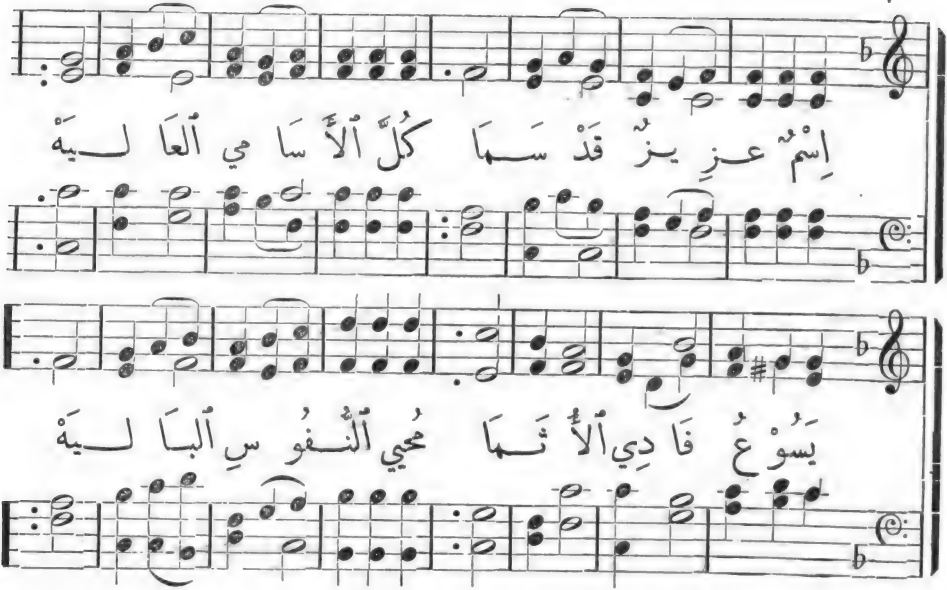 اِسْمٌ عـزِ يـزٌ قَدْ سَـمَا كُلَّ ٱلأَ سَا مي ٱلعَا لـيَهْ
يَسُوْ عُ فَا دِي ٱلأُ ثَـمَا مُحيي ٱلنُّـفُو سِ ٱلبَـا لـيَهْ